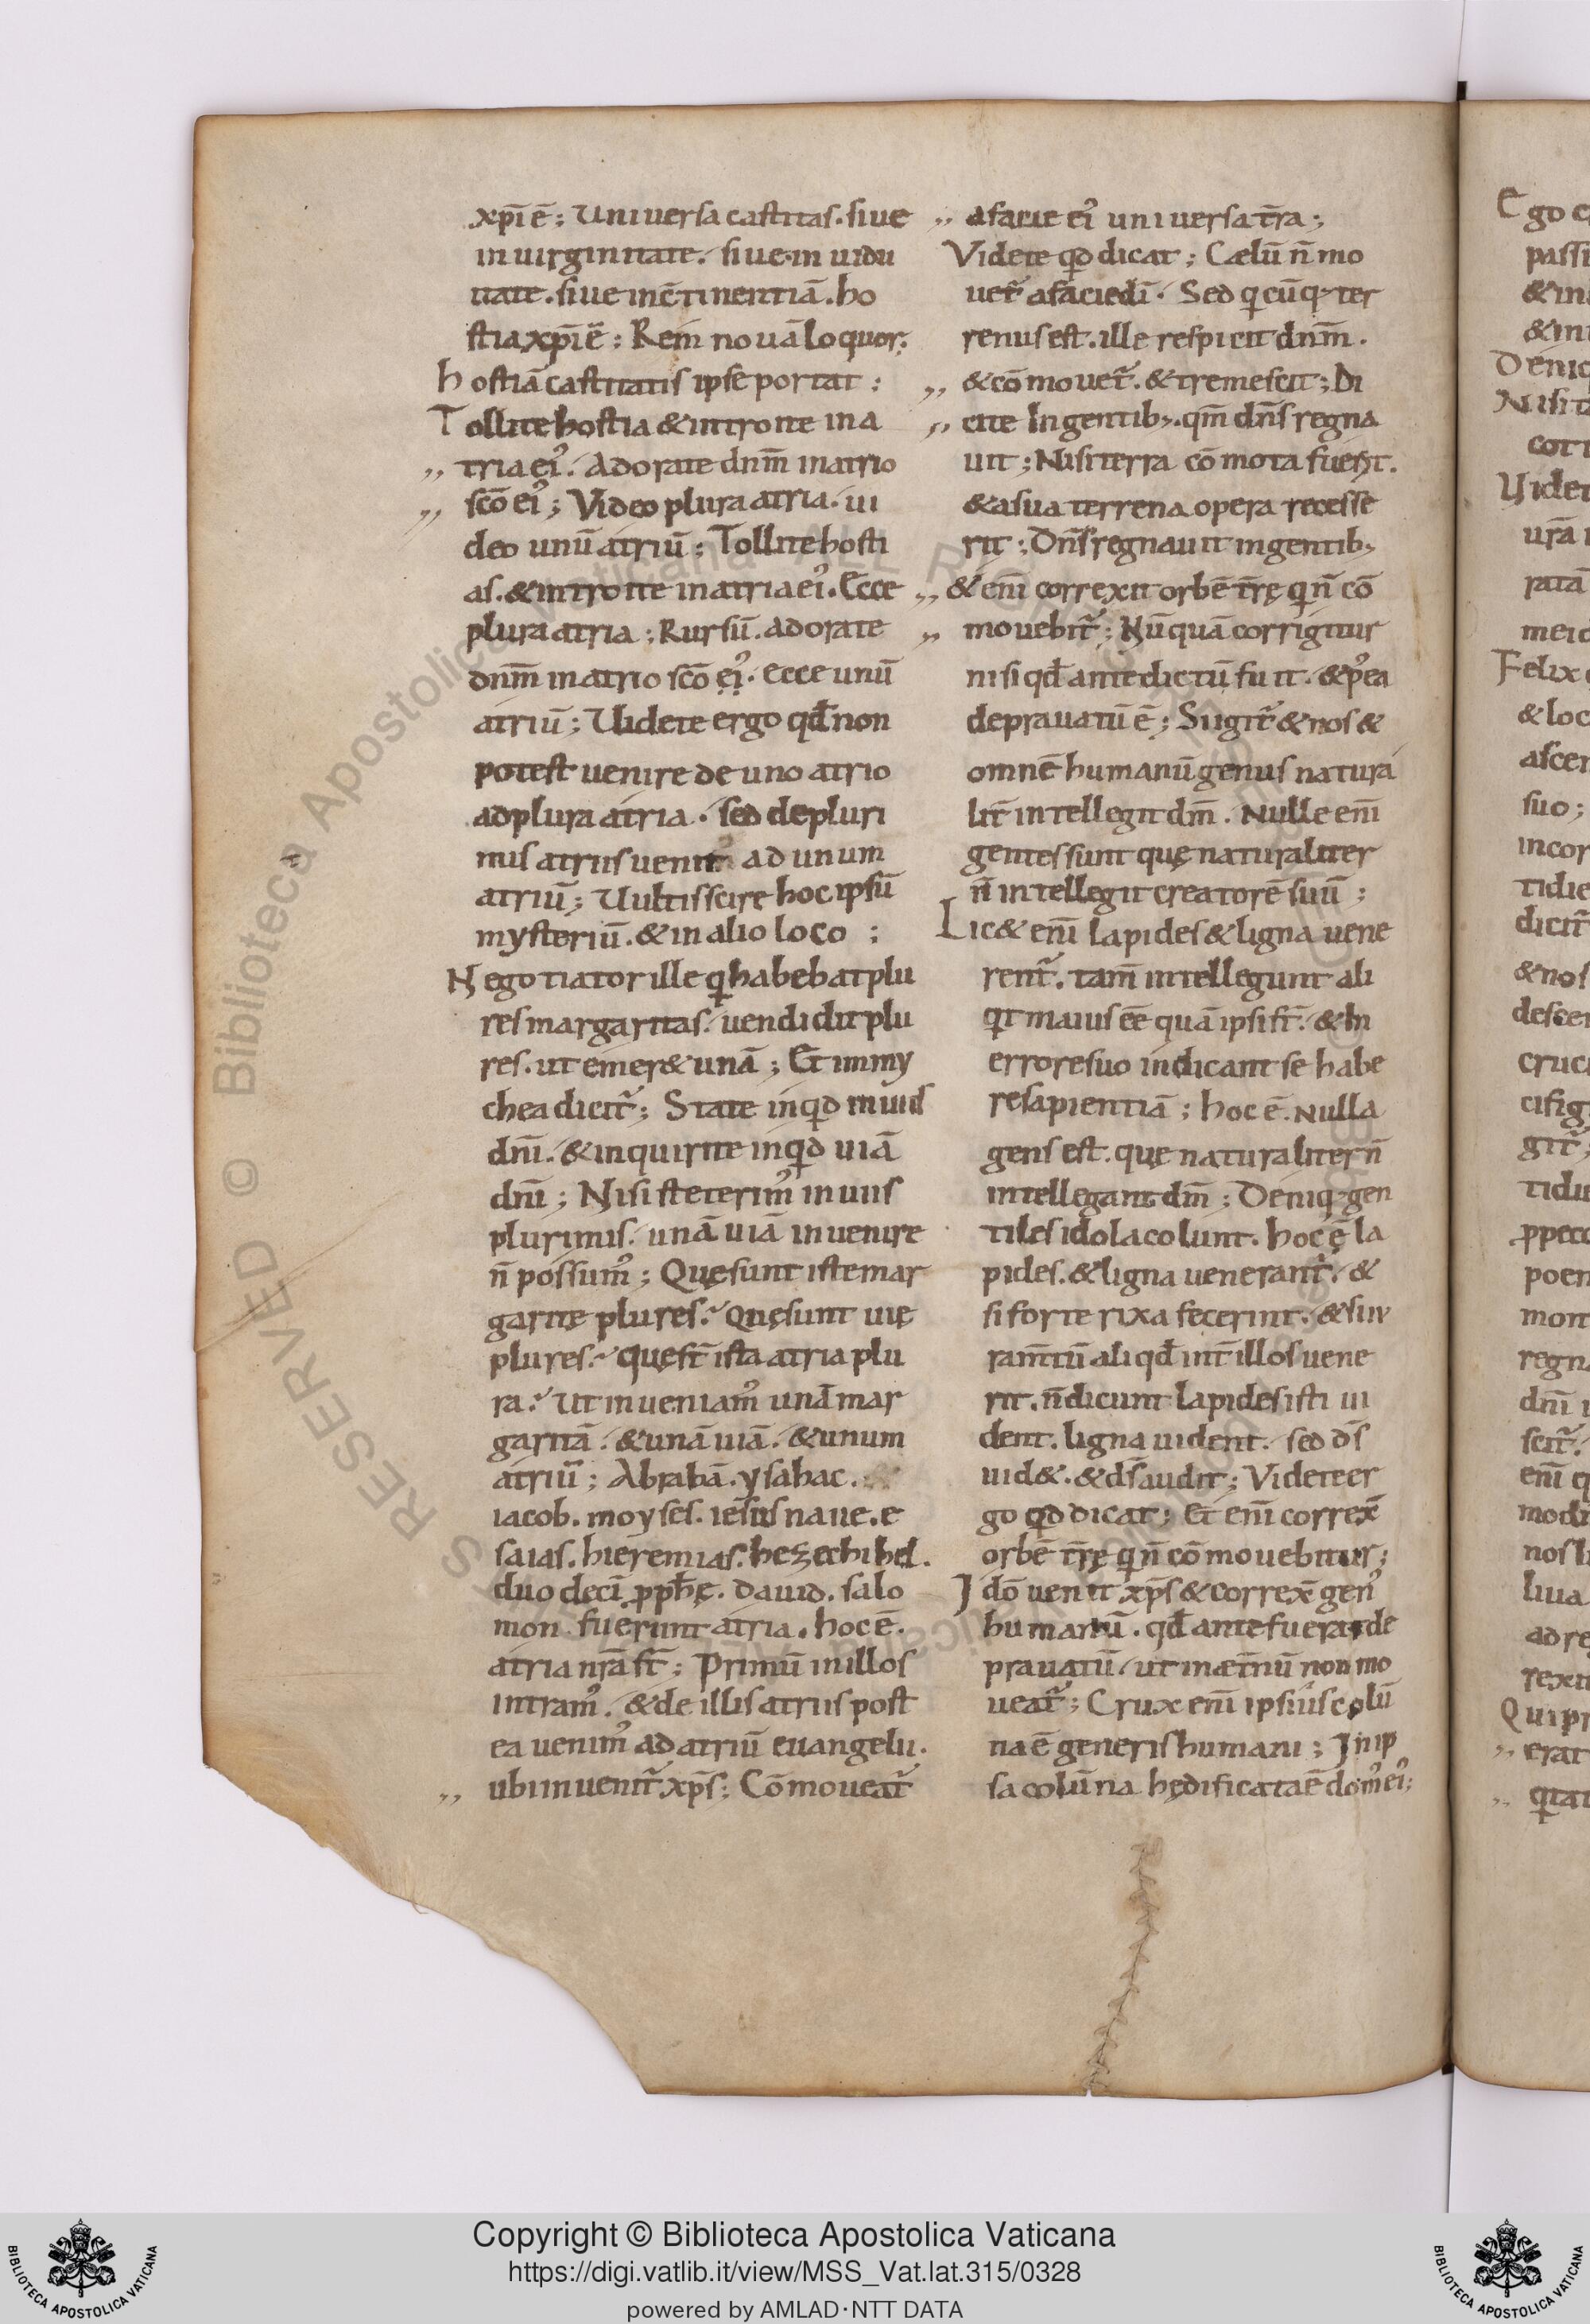 xp̄i ē; Uniuersa castitas. siue
in uirginitate. siue in uidu
itate. siue in c̄tinentiā. ho
stia xp̄i ē; Rem nouā loquor.
hostiā castitatis ipse portat:
Tollite hostia & introite in a
,, tria ei᾽. Adorate dnm̄ in atrio
,, scō ei᾽; Video plura atria. ui
deo unū atriū; Tollite hosti
as. & introite in atria ei᾽. Ecce
plura atria; Rursū. adorate
dnm̄ in atrio scō ei᾽. ecce unū
atriū; Uidete ergo qđ non
potest uenire de uno atrio
ad plura atria. sed de pluri
mis atriis uenit᾽ ad unum
atriū; Uultis scire hoc ipsū
mysteriū. & in alio loco;
Negotiator ille q habebat plu
res margaritas. uendidit plu
res. ut emer& unā; Et in my
chea dicit᾽; State inqd in uiis
dnī. & inquirite inqd uiā
dnī; Nisi steterim᾽ in uiis
plurimis. unā uiā inuenire
n̄ possum᾽; Quę sunt iste mar
garitę plures? Quę sunt uię
plures? quę st̄ ista atria plu
ra? Ut inueniam᾽ unā mar
garitā. & unā uiā. & unum
atriū; Abrahā. ysahac.
iacob. moyses. iesus naue. e
saias. hieremias. hezechihel.
duodecī pph̄ę. dauid. salo
mon fuerunt atria. hoc ē.
atria nrā st̄; Primū in illos
intram᾽. & de illis atriis post
ea uenim᾽ ad atriū euangelii.
,, ubi inuenit᾽ xp̄s; Cōmoueat᾽
,, a facie ei᾽ uniuersa t̄ra;
Videte qd dicat; Cælū n̄ mo
uet᾽ a facie dī. Sed qcūq; ter
renus est. ille respicit dnm̄.
,, & cōmouet᾽. & tremescit; Di
,, cite In gentib;. qm̄ dn̄s regna
uit; Nisi terra cōmota fuerit.
& a sua terrena opera recesse
rit; Dn̄s regnauit in gentib;
,, & enī correxit orbē t̄rę q n̄ cō
,, mouebit᾽; Nūquā corrigitur
nisi qđ ante dictū fuit. & p᾽ea
deprauatū ē; Sugit᾽ & nos &
omnē humanū genus natura
lit̄ intellegit dm̄. Nulle enī
gentes sunt quę naturaliter
n̄ intellegit creatorē suū;
Lic& enī lapides & ligna uene
rent᾽. tam̄ intellegunt ali
qt maius eē quā ipsi st̄. & In
errore suo indicant se habe
re sapientiā; hoc ē. Nulla
gens est. quę naturaliter n̄
intellegant dm̄; Deniq; gen
tiles idola colunt. hoc ē la
pides. & ligna uenerant᾽. &
si forte rixa fecerint. & iur
ram̄tū aliqđ int̄ illos uene
rit. n̄ dicunt lapides isti ui
dent. ligna uident. sed ds̄
uid&. & ds̄ audit; Videte er
go qd dicat; Et enī correx̄
orbē t̄rę q n̄ cōmouebitur;
Idō uenit xp̄s & correx̄ gen᾽
humanū. qđ ante fuerat de
prauatū. ut in æt̄nū non mo
ueat᾽; Crux enī ipsius colū
na ē generis humani; In ip
sa colūna hędificata ē dom᾽ ei᾽;
Ego c
passi
& in
& in
Denic
Nisi t
cot
Uider
urā
ratā
meid
Felix
& loc
ascen
suo;
incor
tidie
dicit᾽
& nos
descen
cruci
cifig
git᾽;
tidu
ppecc
poen
mon
regna
dnī
scit᾽.
enī q
modi
nos li
liua
ad re
rexit
Qui pr
,, erat
,, qtat
Copyright © Biblioteca Apostolica Vaticana
https://digi.vatlib.it/view/MSS_Vat.lat.315/0328
powered by AMLAD·NTT DATA
BIBLIOTECA APOSTOLICA VATICANA
BIBLIOTECA APOSTOLICA VATICANA